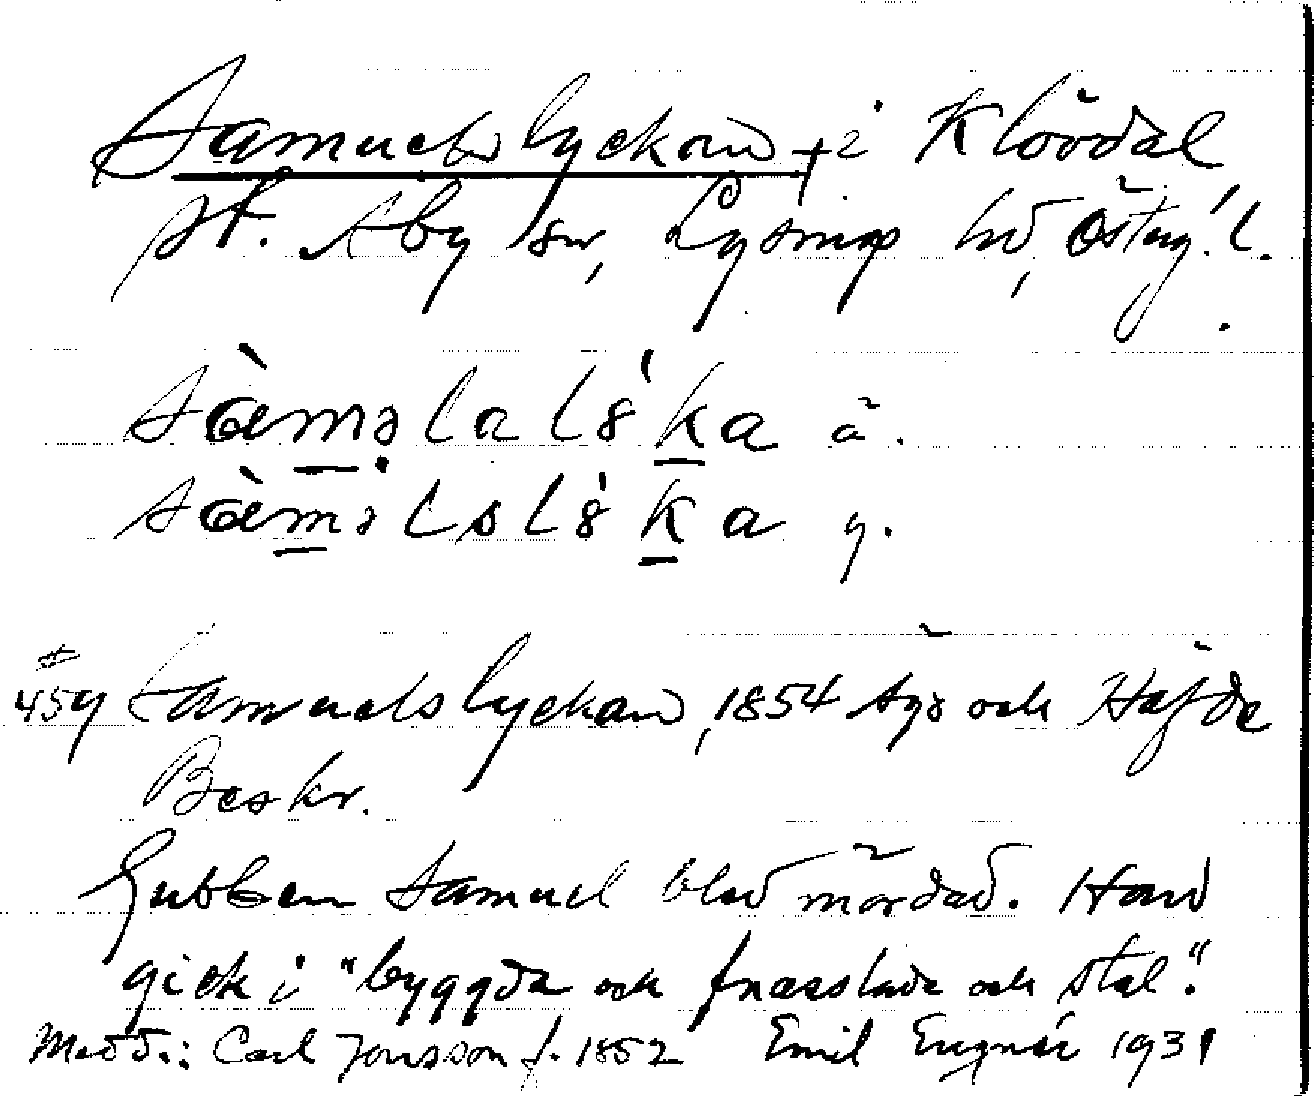 Samuelslyckan + i Klövdal
St. Åby sn, Lysings hd, Östug. l.
sàmalalýka ä.
sàmǝlslýka y.
459 Samuelslyckan, 1854 Äga och Häfde
Beskr.
Gubben Samuel blev mördad. Han
gick i "byggda och frasslade och stal".
Medd.: Carl Jonsson f. 1852 Emil 1931